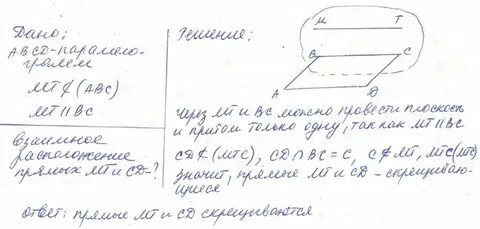 Дано:
ABCD-паралело-
грамм
MT ⊄ (ABC)
MT ∥ BC
Взаимное
расположение
прямых MT и CD-?
Решение:
M T
B C
A D
Через MT и BC можно провести плоскость
и притом только одну, так как MT ∥ BC
CD ⊄ (MTC), CD ∩ BC = C, C ∉ MT, MT⊂(MTC)
значит, прямые MT и CD - скрещиваю-
щиеся
Ответ: прямые MT и CD скрещиваются